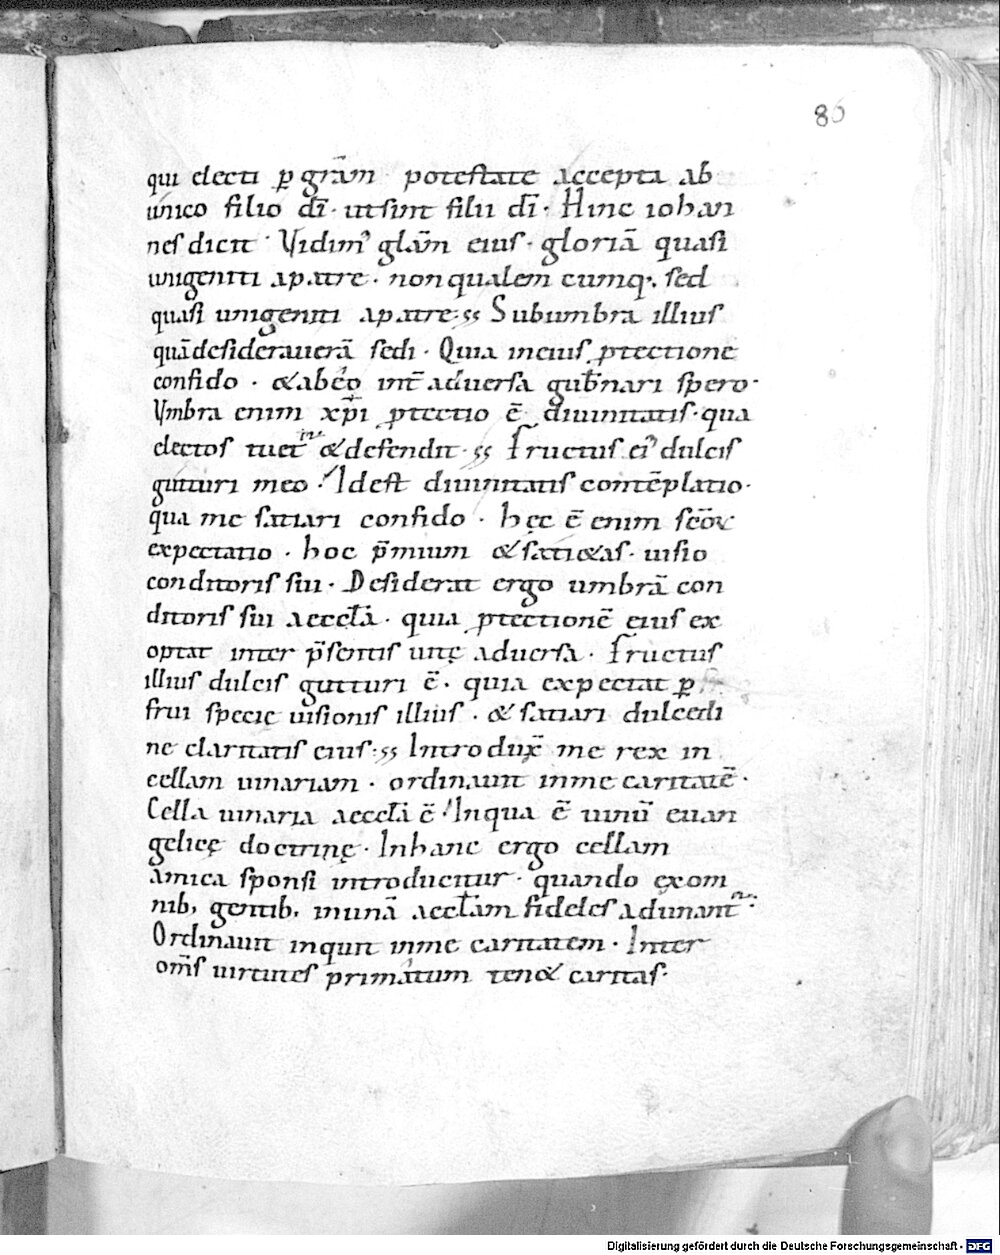 86
qui electi ꝑ gr̄am potestate accepta ab
unico filio dī· ut sint filii dī· Hinc iohan
nes dicit· Vidimꝰ gl̄am eius· gloriā quasi
unigeniti a patre· non qualem cumq; sed
quasi unigeniti a patre· Sub umbra illius
quā desideraverā sedi· Quia in eius ꝓtectione
confido· & ab eo int̄ adversa gub̄nari spero·
Vmbra enim xp̄i ꝓtectio ē divinitatis· qua
electos tuet᷑ & defendit· Fructus eiꝰ dulcis
gutturi meo· Id est divinitatis contēplatio·
qua me satiari confido· hęc ē enim sc̄oꝝ
expectatio· hoc p̄mium & sati&as· visio
conditoris sui· Desiderat ergo umbrā con
ditoris sui aeccl̄a· quia ꝓtectionē eius ex
optat inter p̄sentis vitę adversa· Fructus
illius dulcis gutturi ē· quia expectat ꝑ
frui specię visionis illius· & satiari dulcedi
ne claritatis eius· Introdux̄ me rex in
cellam vinariam· ordinavit in me caritatē·
Cella vinaria aeccl̄a ē· In qua ē vinū euan
gelicę doctrinę· In hanc ergo cellam
amica sponsi introducitur· quando ex om
nib; gentib; in unā aeccl̄am fideles adunant᷑·
Ordinavit inquit in me caritatem· Inter
om̄s virtutes primatum ten& caritas·
Digitalisierung gefördert durch die Deutsche Forschungsgemeinschaft - DFG